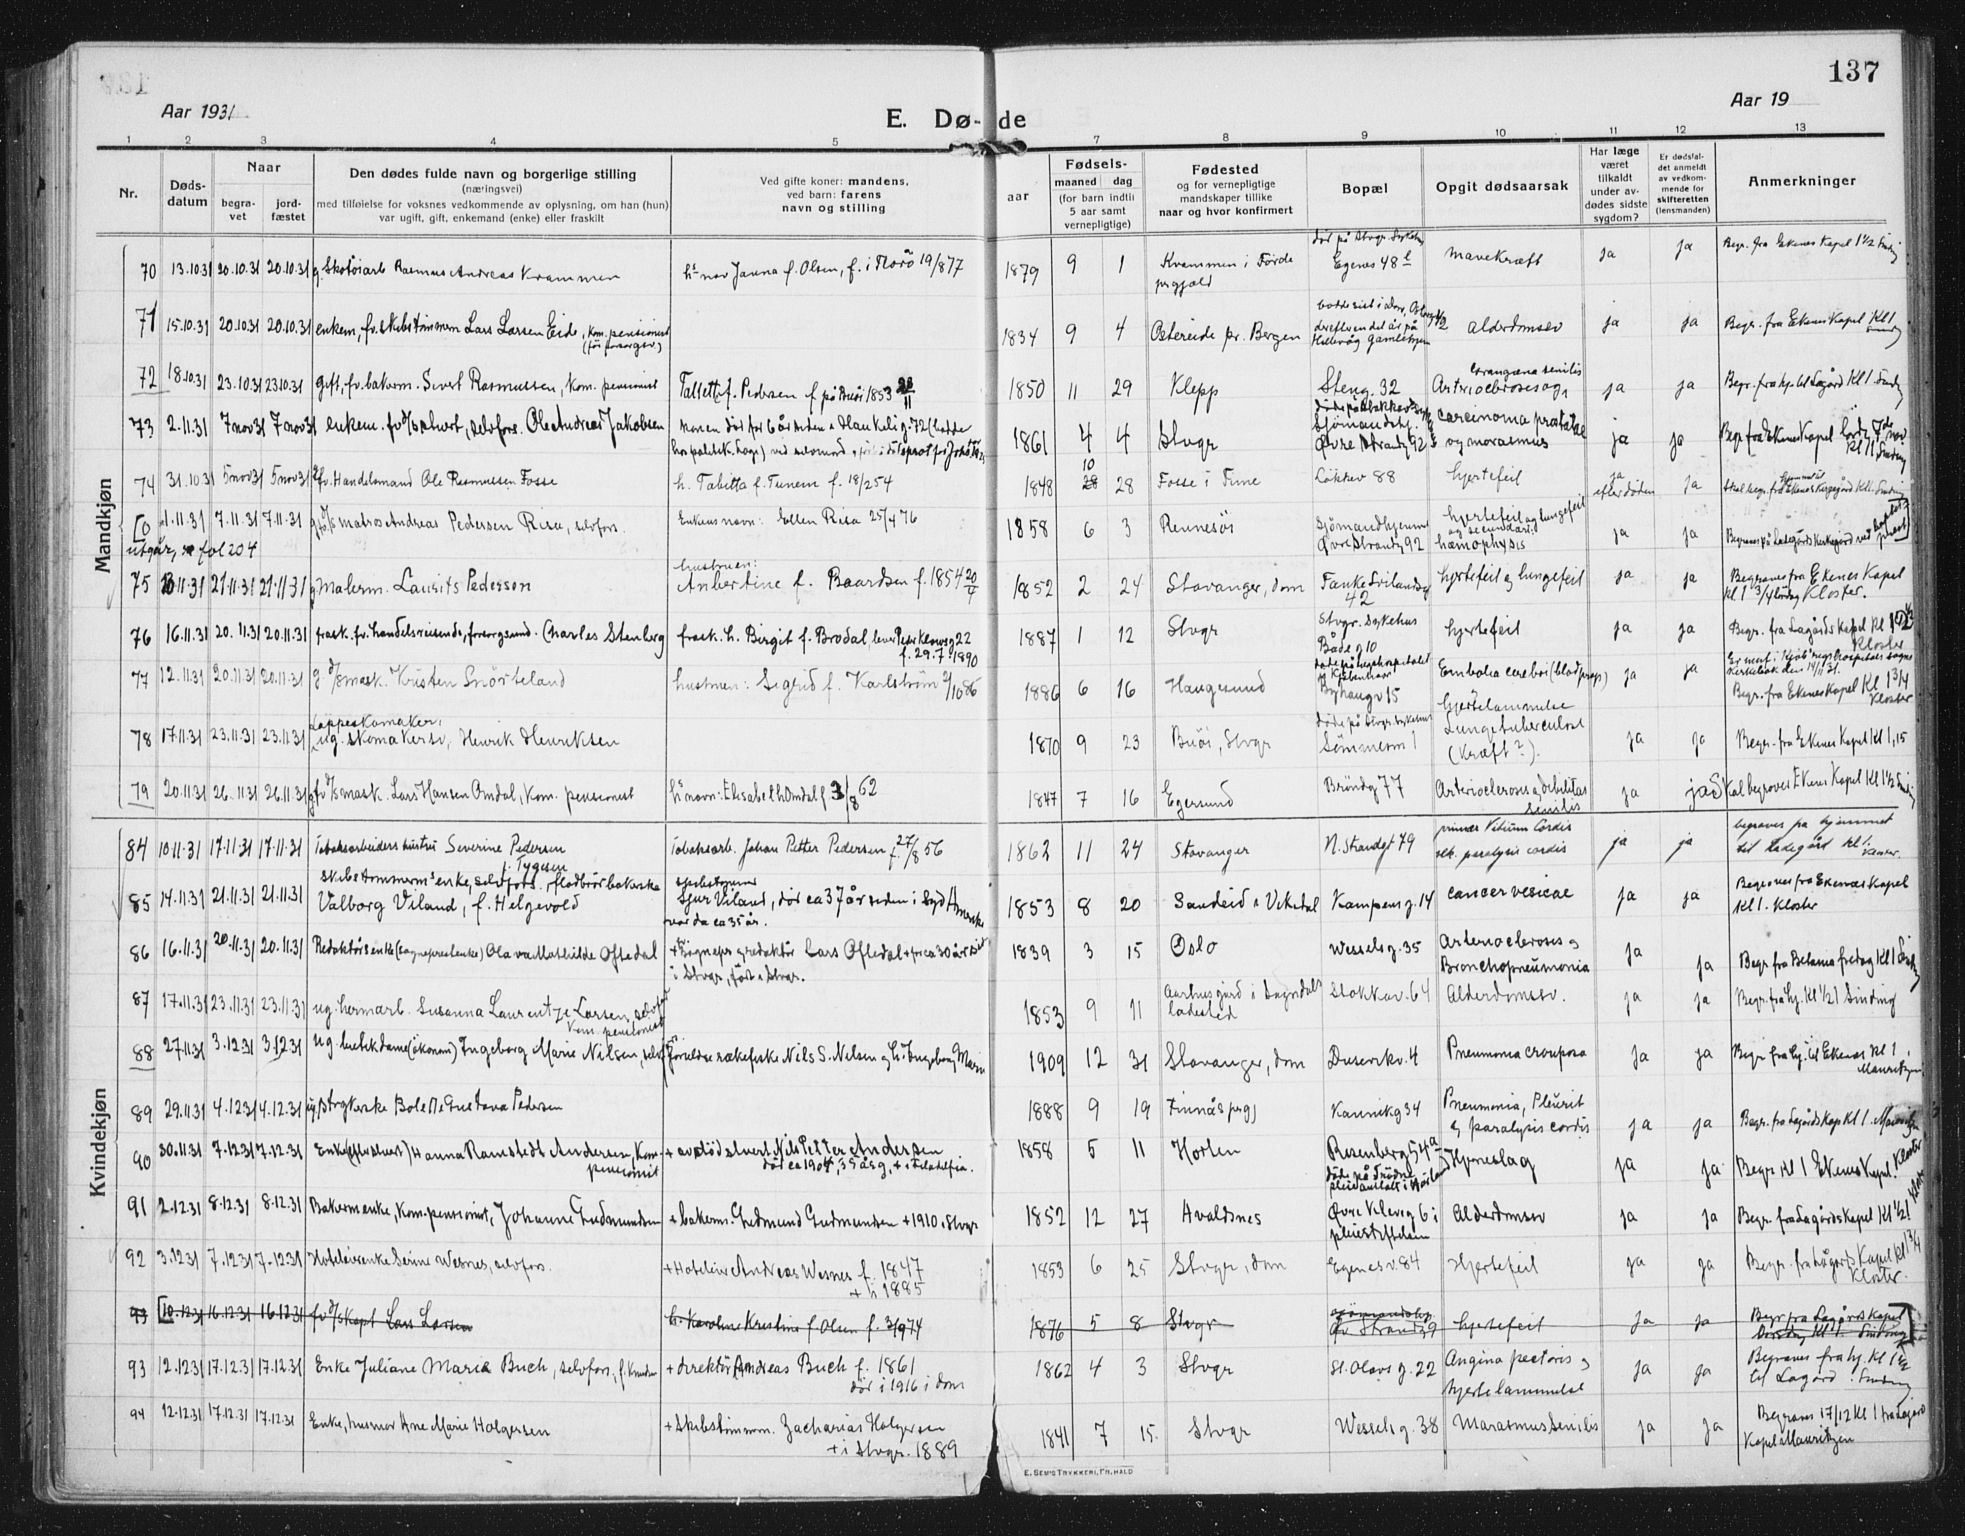 137
Aar 1931
Aar 19
E. Dø- de
1 2 3 4 5 7 8 9 10 11 12 13
Nr.
Døds-
datum
Naar
begra-
vet
jord-
fæstet
Den dødes fulde navn og borgerlige stilling
(næringsvei)
med tilføielse for voksnes vedkommende av oplysning, om han (hun)
var ugift, gift, enkemand (enke) eller fraskilt
Ved gifte koner: mandens,
ved barn: farens
navn og stilling
aar
Fødsels-
maaned dag
(for barn indtil
5 aar samt
vernepligtige)
Fødested
og for vernepligtige
mandskaper tillike
naar og hvor konfirmert
Bopæl
Opgit dødsaarsak
Har læge
været
tilkaldt
under av-
dødes sidste
sygdom?
Er dødsfal-
det anmeldt
av vedkom-
mende for
skifteretten
(lensmanden)
Anmerkninger
Mandkjøn
70 13.10.31 20.10.31 20.10.31 g. Skotøiarb Rasmus Andreas Krammen
h's nav Janna f. Olsen, f. i Florø 19/8 77
1879 9 1 Kvammen i Førde prgjæld
død på Stvgr. Sykehus Egenes 48 mavekræft ja ja Begr. fra Ekenes Kapel 1 1/2 Sinding
71 15.10.31 20.10.31 20.10.31 enkem, fv. skibstømmerm Lars Larsen Eide, kom. pensionist
1834 9 4 Ostereide pr. Bergen
alderdomssv ja ja Begr. fra Ekenes Kapel Kl 1 Sinding
72 18.10.31 23.10.31 23.10.31 gift, fv. bakerm. Sivert Rasmussen, kom. pensionist
f. Pedersen f på Buøi 1853 28/11
1850 11 29 Klepp Steng. 32
ja ja Begr. fra hp. til Lagård Kl 1 Sinding
73 2.11.31 7 nov 31 7 nov 31 enkem. fv d/s stuert, selvfors. Ole Andreas Jakobsen
konen død for 6 år siden
1861 4 4 Stvgr Øvre Strandg 92
carcinoma prostatae og marasmus ja ja Begr. fra Ekenes Kapel
74 31.10.31 5 nov 31 5 nov 31 fv. Handelsmand Ole Rasmussen Fosse
h. Tabitta f. Tunem f. 18/2 54
1848 10 28 Fosse i Time Løkkev 88 hjertefeil ja efter døden ja
1.11.31 7.11.31 7.11.31 matros Andreas Pedersen Risa, selvfors.
utgår, se fol 204
Enkens navn: Ellen Risa 25/4 76
1858 6 3 Rennesøi Sjømandhjemme Øvre Strandg 92
hjertefeil og lungefeil og secundær: hæmophysis ja ja
75 21.11.31 21.11.31 g malerm. Laurits Pederson
hustruen: Anbertine f. Baardsen f. 1854 20/4
1852 2 24 Stavanger, dom Tanke Svilandsg 42
hjertefeil og lungefeil ja ja Begraves fra Ekenes Kapel Kl 1 3/4 lørdag Kloster.
76 16.11.31 20.11.31 20.11.31 frask. fv. handelsreisende, forsorgsund. Charles Stenberg
frask. h. Birgit f. Brodal, lever Peder Klowsg 22 f. 29.7.1890
1887 1 12 Stvgr Stvgr. Sykehus Bådeg 10 hjertefeil ja ja Begr. fra Lagårds Kapel Kl 1 1/2 Kloster
77 12.11.31 20.11.31 20.11.31 g. d/s mask. Kristen Snørteland
hustruen: Sigrid f. Karlstrøm 2/10 86
1886 6 16 Haugesund Byhaugv 15
Embolia cerebri (blodprop) hjertelammelse ja ja Begr. fra Ekenes Kapel Kl 1 3/4 Kloster
78 17.11.31 23.11.31 23.11.31 Lappeskomaker, ug. skomakersv, Henrik Henriksen
1870 9 23 Buøi, Stvgr død på Stvgr. sykehus Sømmesm 1
Lungetuberculose (Kræft?). ja ja Begr. fra Ekenes Kapel Kl 1,15
79 20.11.31 26.11.31 26.11.31 gfv d/s mask. Lars Hansen Omdal, Kom. pensionist
h's navn: Elisabeth Omdal f 3/8 62
1847 7 16 Egersund Brøndg 77 Arteriosclerosis og debilitas senilis ja ja Skal begraves Ekenes Kapel Kl 1 1/2 Sinding
Kvindekjøn
84 10.11.31 17.11.31 17.11.31 Tobaksarbeiders hustru Severine Pedersen f. Tygesen
Tobaksarb. Johan Petter Pedersen f. 27/8 56
1862 11 24 Stavanger N. Strandgt 79 primær Vitium Cordis sek. paralysis cordis ja ja begraves fra hjemmet til Ladegård kl 1.
85 14.11.31 21.11.31 21.11.31 skibstømmerm's enke, selvfors. fladbrødbakerske Valborg Viland, f. Helgevold
skibstømm Sjur Viland, død ca 37 år siden i Syd Amerika var da ca 35 år.
1853 8 20 Sandeid i Vikedal Kampens g. 14 cancer vesicae ja ja Begraves fra Ekenæs Kapel Kl 1. Kloster
86 16.11.31 20.11.31 20.11.31 Redaktørs enke (sogneprestenke) Olava Mathilde Oftedal
+ Sognepr og redaktør Lars Oftedal + for ca 30 år sid i Stvgr., født i Stvgr.
1839 3 15 Oslo Wessels g. 35 Arteriosclerosis og Bronchopneumonia ja ja Begr fra Betania fredag Kl 1 Sinding
87 17.11.31 23.11.31 23.11.31 ug. hermarb. Susanna Laurentze Larsen, selvfors kom. pensionist
1853 9 11 Aarhusgård i Sogndals ladested Stokkav. 64 Alderdomssv. ja ja Begr. fra hj. Kl 1/2 1 Sinding
88 27.11.31 3.12.31 3.12.31 ug. butikdame (økonom) Ingeborg Marie Nilsen, selvf
foreldre rækefiske Nils S. Nilsen og h's Ingeborg Marie
1909 12 31 Stavanger, dom Dusevikv. 4 Pneumonia crouposa ja ja Begr fra hj. til Ekenes Kl 1, Mauritzen
89 29.11.31 4.12.31 4.12.31 ug. strykerske Bolette Gustava Pedersen
1888 9 19 Finnås prgj Kannikg 34 Pneumonia, Pleurit og paralysis cordis ja ja Begr. fra Lagårds Kap Kl 1. Mauritzen
90 30.11.31 7.12.31 7.12.31 Enke (efter stuert) Hanna Ramstedt Andersen, Kom. pensionist
+ avdød stuert Nils Petter Andersen død ca 1904, 35 års g, + i Filadelfia.
1858 5 11 Horten Rosenbergg 54a Hjerneslag ja ja Begr Kl 1 Ekenes Kapel. Kloster
91 2.12.31 8.12.31 8.12.31 Bakerm enke, Kom. pensionist, Johanne Gudmundsen
+ bakerm. Gudmund Gudmundsen + 1910 i Stvgr
1852 12 27 Avaldsnes Øvre Kleivg 6 i pleiestiftelsen Alderdomssv ja ja Begr. fra Lagårds Kapel Kl 1/2 1 Kloster
92 3.12.31 7.12.31 7.12.31 Hoteleierenke Serine Wesnes, selvfors.
+ Hoteleier Andreas Wesnes f. 1847 + h 1885
1853 6 25 Stvgr, dom Egenesv. 84 Hjertefeil ja ja Begr. fra Lågårds Kapel Kl 1 3/4 Kloster.
93 10.12.31 16.12.31 16.12.31 fv d/s Kapt Lars Larsen
h. Karoline Kristine f Olsen f. 3/9 74
1876 5 8 Stvgr Øv Strandg 9 hjertefeil ja ja Begr fra Lagårds Kapel Onsdag Kl 1. Sinding
93 12.12.31 17.12.31 17.12.31 Enke Juliane Maria Buch, selvfors., f. Knudsen
+ direktør Andreas Buch f. 1861 død i 1916 i dom
1862 4 3 Stvgr St. Olavs g. 22 Angina pectoris og hjertelammelse ja ja Begraves fra hj. Kl 1 1/2 til Lagård. Sinding
94 12.12.31 17.12.31 17.12.31 Enke, husmor Ane Marie Holgersen
+ Skibstømmerm. Zacharias Holgersen + i Stvgr. 1889
1841 7 15. Stvgr Wessels g. 38 Marasmus Senilis ja ja Begraves 17/12 Kl 1 fra Lagård Kapel Mauritzen
E. SEM'S TRYKKERI, FR.HALD